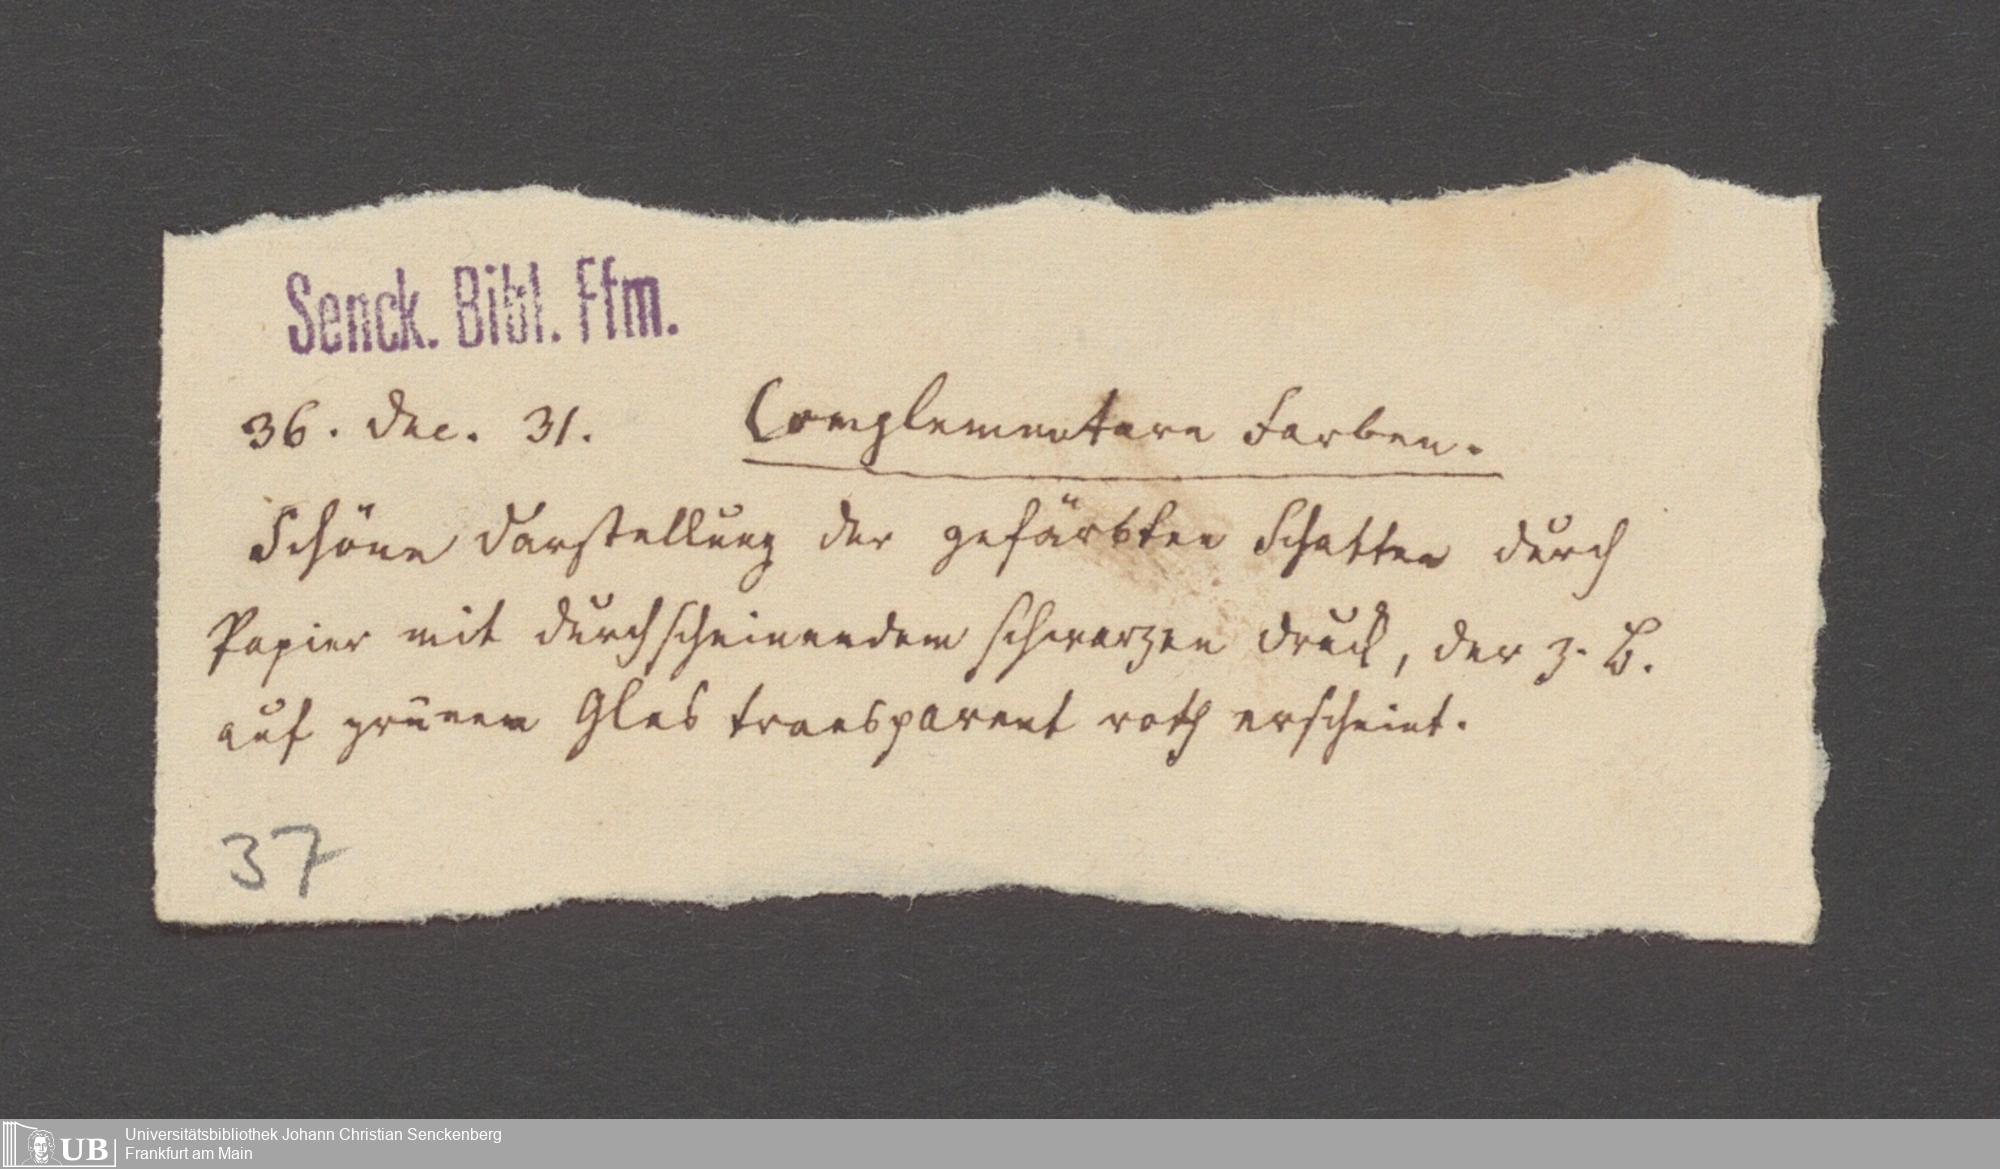 Senck. Bibl. Ffm.
36. Dec. 31. Complementare Farben.
Schöne Darstellung der gefärbten Schatten durch
Papier mit durchscheinendem schwarzen Druck, der z. B.
auf grünem Glas transparent roth erscheint.
37
UB Universitätsbibliothek Johann Christian Senckenberg
Frankfurt am Main